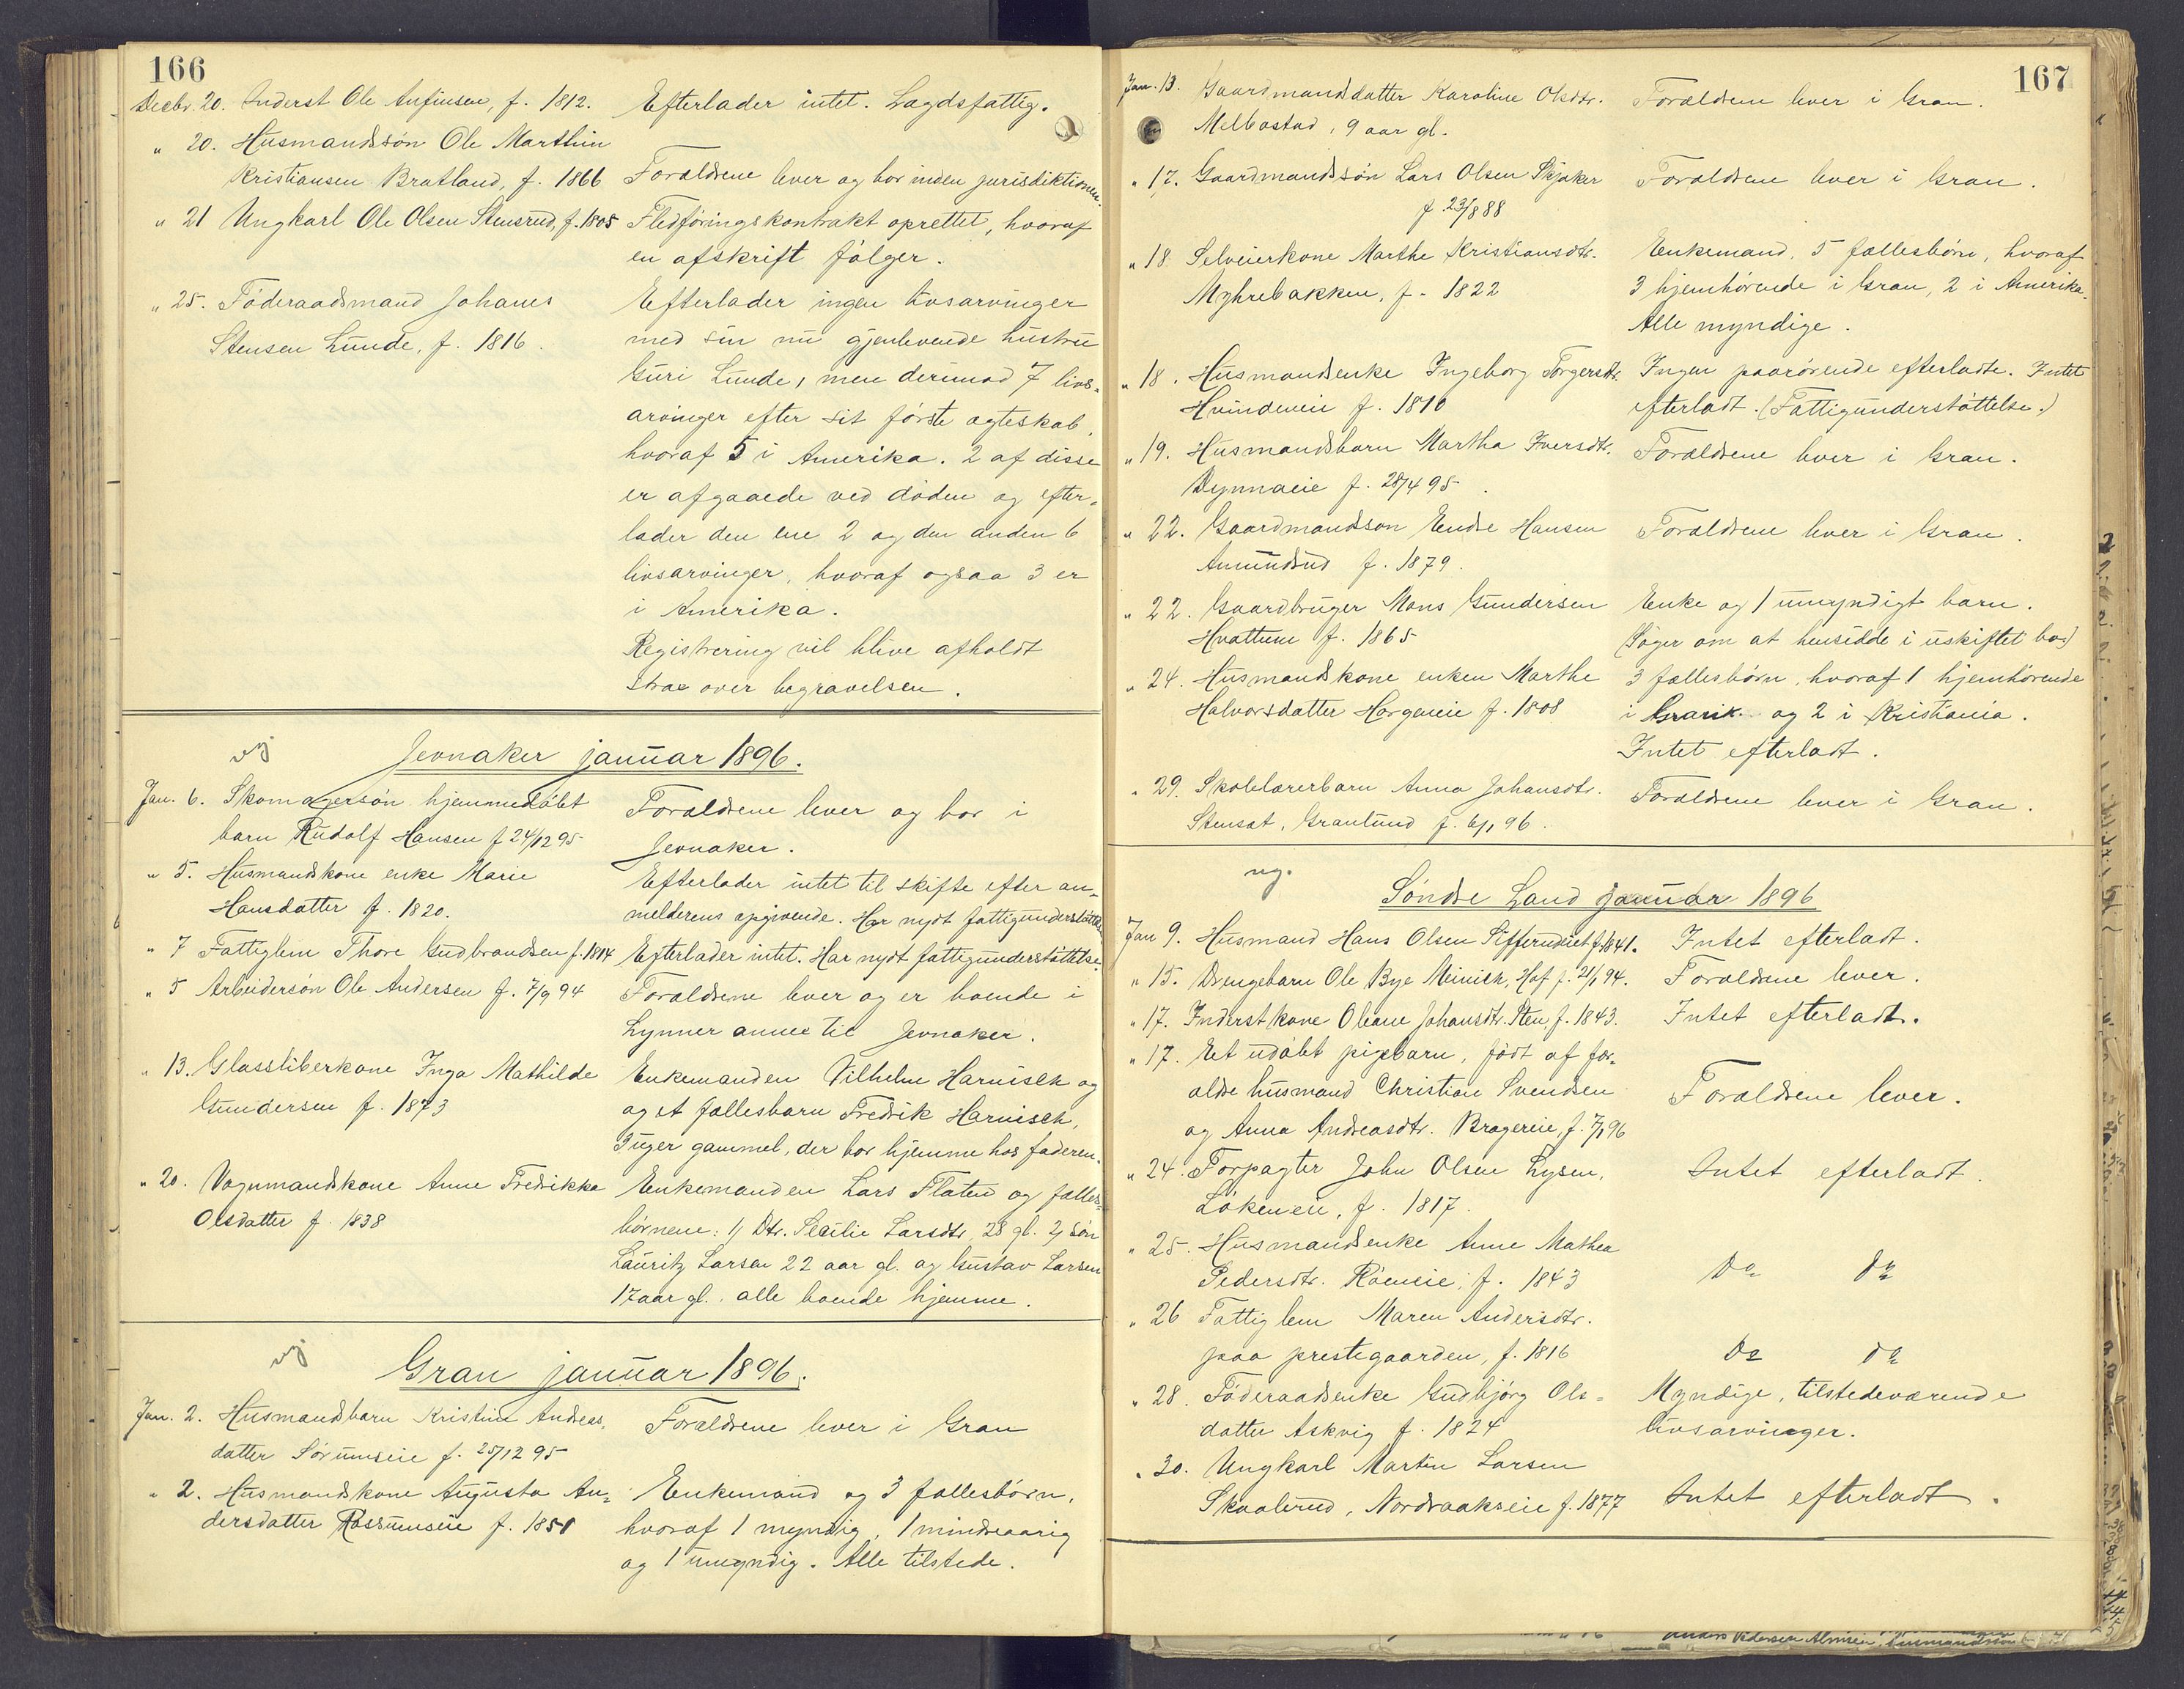 166
Decbr. 20. Inderst Ole Anfinsen, f. 1812. Efterlader intet. Lægdsfattig.
" 20. Husmandssøn Ole Marthin
Kristiansen Bratland, f. 1866 Forældrene lever og bor inden jurisdiktionen.
" 21 Ungkarl Ole Olsen Stensrud, f. 1805 Fledføringskontrakt oprettet, hvoraf
en afskrift følger.
" 25. Føderaadsmand Johans Efterlader ingen livsarvinger
Stensen Lunde, f. 1816. med sin nu gjenlevende hustru
Guri Lunde, men derimod 7 livs-
arvinger efter sit første ægteskab,
hvoraf 5 i Amerika. 2 af disse
er afgaaede ved døden og efter-
lader den ene 2 og den anden 6
livsarvinger, hvoraf ogsaa 3 er
i Amerika.
Registrering vil blive afholdt
strax over begravelsen.
Jevnaker januar 1896.
Jan. 6. Skomagersøn hjemmedøbt Forældrene lever og bor i
barn Rudolf Hansen f 24/12 95 Jevnaker.
" 5. Husmandskone enke Marie Efterlader intet til skifte efter an-
Hansdatter f. 1820. melderens opgivende. Har nydt fattigunderstøttelse
" 7 Fattiglem Thore Gudbrandsen f. 1814 Efterlader intet. Har nydt fattigunderstøttelse.
" 5 Arbeidersøn Ole Andersen f. 7/9 94 Forældrene lever og er boende i
Lynner annex til Jevnaker.
" 13. Glassliberkone Inga Mathilde Enkemanden Vilhelm Harnisch og
Gundersen f. 1873 og et fællesbarn Fredrik Harnisch,
3 uger gammel, der bor hjemme hos faderen.
" 20. Vognmandskone Anne Fredrikka Enkemanden Lars Flaten og fælles-
Olsdatter f. 1838 børnene: 1) Dtr. Secilie Larsdtr. 28 gl. 2) Søn
Lauritz Larsen 22 aar gl. og Gustav Larsen
17 aar gl. alle boende hjemme.
Gran januar 1896.
Jan. 2. Husmandsbarn Kristine Andreas- Forældrene lever i Gran
datter Sørumseie f. 25/12 95
" 2. Husmandskone Augusta An- Enkemand og 3 fællesbørn,
dersdatter Rossumseie f. 1851 hvoraf 1 myndig, 1 mindreaarig
og 1 umyndig. Alle tilstede.
167
Jan. 13. Gaardmandsdatter Karoline Olsdtr. Forældrene lever i Gran.
Melbostad, 9 aar gl.
" 17. Gaardmandssøn Lars Olsen Skjaker Forældrene lever i Gran.
f. 23/8 88
" 18 Selveierkone Marthe Kristiansdtr. Enkemand, 5 fællesbørn, hvoraf
Myhrebakken, f. 1822 3 hjemhørende i Gran, 2 i Amerika.
Alle myndige.
" 18. Husmandsenke Ingeborg Torgersdtr. Ingen paarørende efterladte. Intet
Hvindeneie f. 1810 efterladt. (Fattigunderstøttelse.)
" 19. Husmandsbarn Martha Iversdtr. Forældrene lever i Gran.
Dynnaeie f. 28/4 95.
" 22. Gaardmandssøn Endre Hansen Forældrene lever i Gran.
Amundrud f. 1879.
" 22. Gaardbruger Mons Gundersen Enke og 1 umyndigt barn.
Hvattum f. 1865 (Søger om at hensidde i uskiftet bo)
" 24. Husmandskone enken Marthe 3 fællesbørn, hvoraf 1 hjemhørende
Halvorsdatter Horgeneie f. 1808 i Gran og 2 i Kristiania.
Intet efterladt.
" 29. Skolelærerbarn Anna Johansdtr. Forældrene lever i Gran.
Stensæt, Granlund f. 6/1 96.
Søndre Land januar 1896
Jan 9. Husmand Hans Olsen f. 1841. Intet efterladt.
" 15. Drengebarn Ole Bye Meinich, Hof f. 21/1 94. Forældrene lever.
" 17. Inderst kone Oleane Johansdtr. Sten f. 1843. Intet efterladt.
" 17. Et udøbt pigebarn, født af for-
ældre husmand Christian Svendsen Forældrene lever.
og Anna Andreasdtr. Bragereie, f. 7/1 96
" 24. Forpagter John Olsen Lysen, Intet efterladt.
Løkeneie, f. 1817.
" 25. Husmandsenke Anne Mathea
Pedersdtr. Røeneie, f. 1843 Do do
" 26 Fattiglem Maren Andersdtr.
paa prestegaarden, f. 1816 Do do
" 28. Føderaadsenke Gudbjørg Ols- Myndige, tilstedeværende
datter Askvig f. 1824 livsarvinger.
" 30. Ungkarl Martin Larsen
Skaalerud, Nordraakseie f. 1877 Intet efterladt.